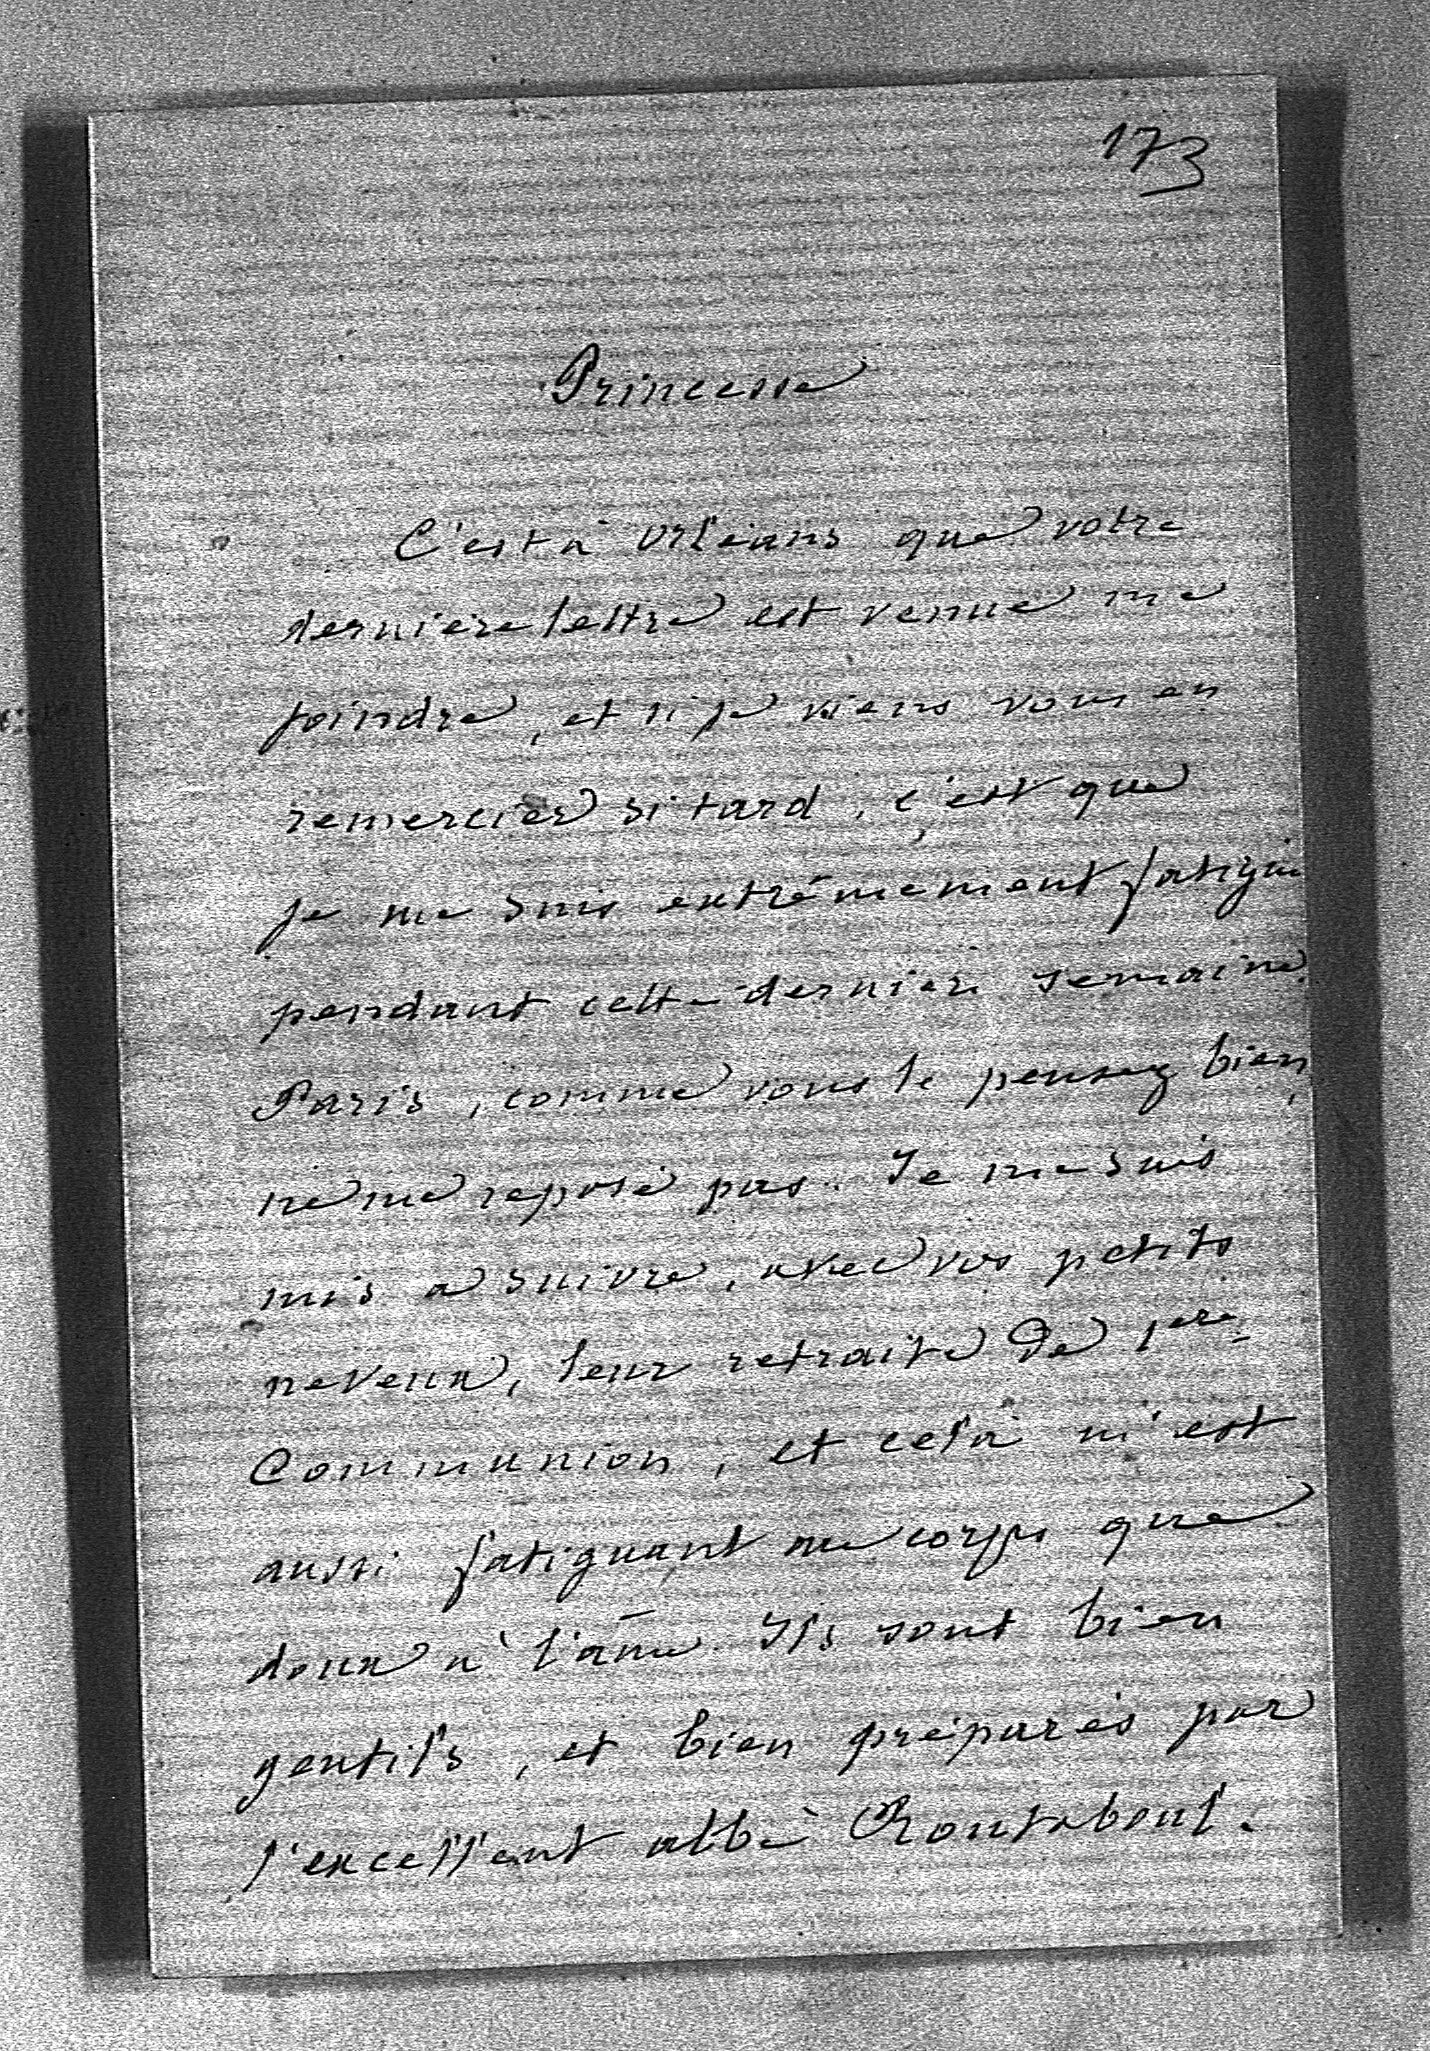 173
Princesse
C'est à Orléans que votre
dernière lettre est venue me
joindre, et si je viens vous en
remercier si tard, c'est que
je me suis extrêmement fatigué
pendant cette dernière semaine.
Paris, comme vous le pensez bien,
ne me repose pas. Je me suis
mis à suivre, avec vos petits
neveux, leur retraite de 1ère
Communion, et celà m'est
aussi fatiguant au corps que
doux à l'âme. Ils sont bien
gentils, et bien préparés par
l'excellent abbé